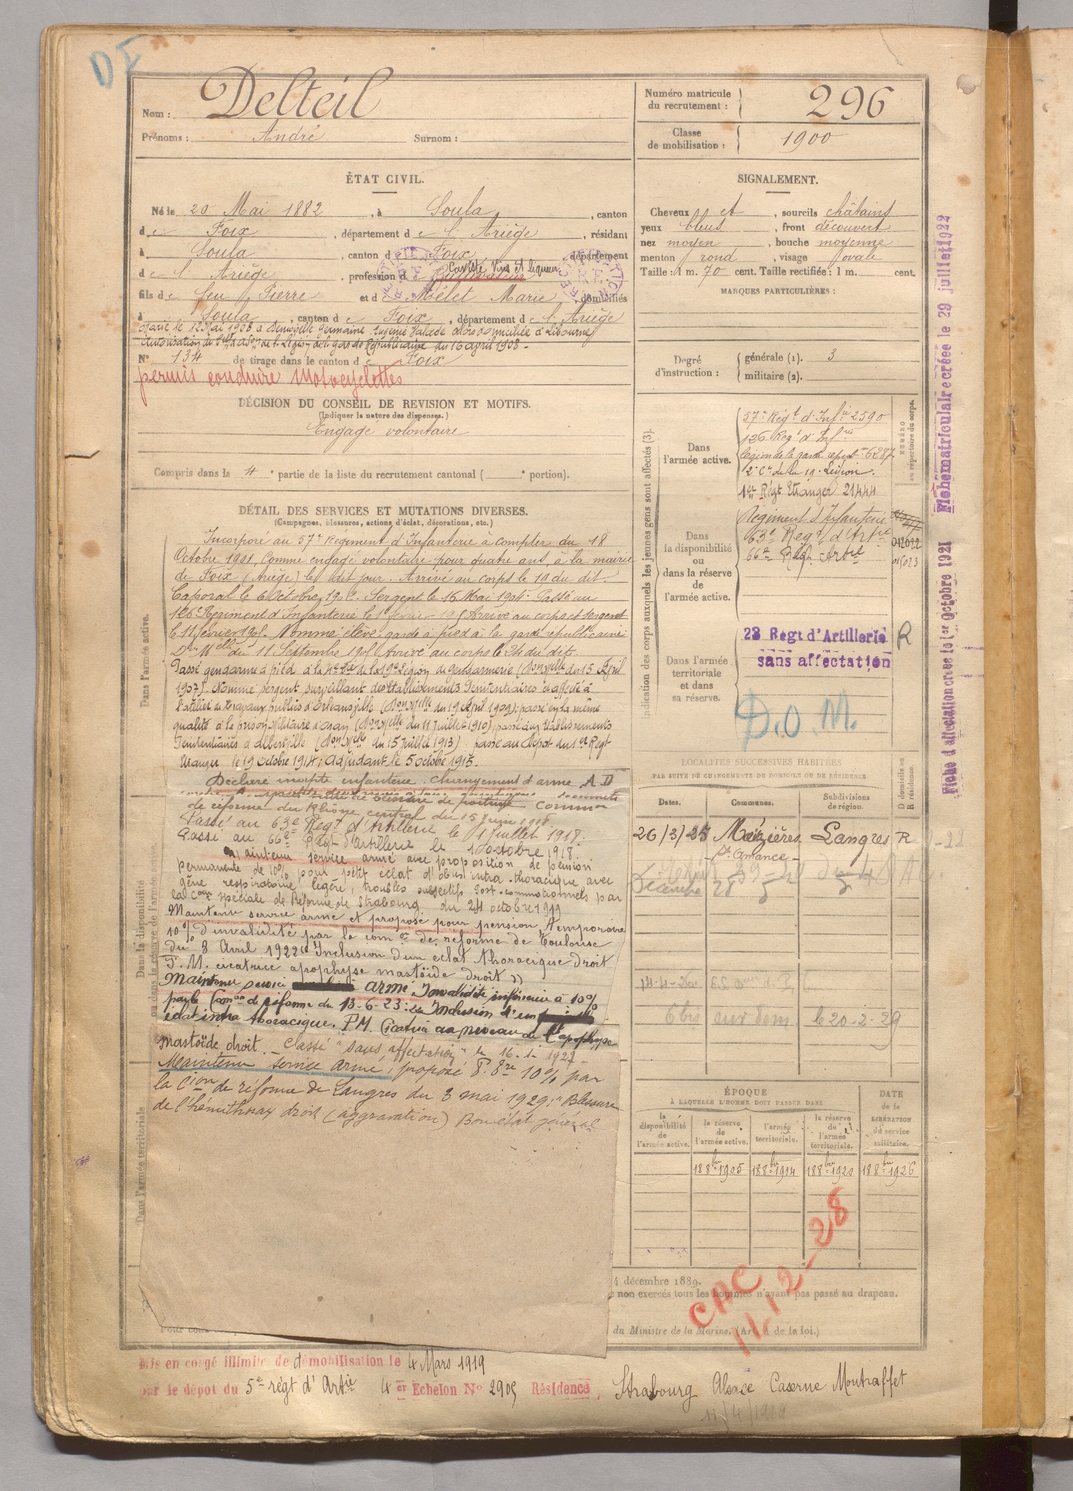 DI
Nom : Delteil
Prénoms : André Surnom :
Numéro matricule du recrutement : 296
Classe de mobilisation : 1900
ÉTAT CIVIL.
Né le 20 Mai 1882, à Soula, canton
de Foix, département de l'Ariège, résidant
à Soula, canton de Foix, département
de l'Ariège, profession de Cultivateur Caviste Vins et liqueurs
fils de feu Pierre et de Mélet Marie, domiciliés
à Soula, canton de Foix, département de l'Ariège
Marié le 12 Mai 1908 à Demoiselle Germaine Eugénie domiciliée à Libourne
Autorisation du de la Légion de la garde Républicaine du 16 avril 1908.
N° 134 de tirage dans le canton de Foix
permis conduire Motocyclettes
DÉCISION DU CONSEIL DE REVISION ET MOTIFS.
(Indiquer la nature des dispenses.)
Engagé volontaire
Compris dans la 4e partie de la liste du recrutement cantonal ( portion).
DÉTAIL DES SERVICES ET MUTATIONS DIVERSES.
(Campagnes, blessures, actions d'éclat, décorations, etc.)
Dans l'armée active.
Incorporé au 57e Régiment d'Infanterie à compter du 18
Octobre 1901, comme engagé volontaire pour quatre ans, à la mairie
de Foix (Ariège) le dit jour. Arrivé au corps le 19 du dit.
Caporal le 6 Octobre 1902. Sergent le 16 Mai 1904. Passé au
126e Régiment d'Infanterie le 1er février Arrivé au corps et sergent
le 11 février 1905. Nommé élève garde à pied à la garde républicaine
Don Mlle du 11 Septembre 1905 Arrivé au corps le du dit
Passé gendarme à pied à la 19e Légion de gendarmerie (Don Mlle du 15 Avril
1907). Nommé sergent surveillant des Etablissements Pénitentiaires et affecté à
l'atelier de travaux publics d'Orléansville (Don Mlle du 19 Avril 1909); passé en la même
qualité à la prison Militaire d'Oran (Don Mlle du 11 Juillet 1910); passé aux Etablissements
Pénitentiaires d'Albertville (Don Mlle du 15 juillet 1913) passé au dépôt du 1er Régt
Etranger le 19 octobre 1914; Adjudant le 5 octobre 1915.
Déclaré inapte infanterie. Changement d'arme A D
de réforme du Rhône central du 15 Juin 1918
Passé au 63e Régt d'Artillerie le 1 Juillet 1918.
Passé au 66e Régt d'Artillerie le 1 Octobre 1918.
Maintenu service armé avec proposition de pension
permanente de 10% pour petit éclat d'obus intra-thoracique avec
gêne respiratoire légère, troubles subjectifs post-commotionnels par
la Con spéciale de Réforme de Strasbourg du 24 octobre 1919
Maintenu service armé et proposé pour pension temporaire
10% d'invalidité par la com on de réforme de Toulouse
du 8 Avril 1922 Inclusion d'un éclat thoracique droit
P. M. cicatrice apophyse mastoïde droit
Maintenu service armé Invalidité inférieure à 10%
par la Con de réforme du 13-6-23 : Inclusion d'un
éclat intra thoracique. P.M. Cicatrice au niveau de l'apophyse
mastoïde droit. Classé "sans affectation" le 16.1.1927
Maintenu service armé, proposé P. 10% par
la Cion de réforme de Langres du 3 mai 1929 : Blessure
de l'hémithorax droit (aggravation) Bon état général
Dans l'armée territoriale
SIGNALEMENT.
Cheveux et, sourcils châtains
yeux bleus, front découvert
nez moyen, bouche moyenne
menton rond, visage ovale
Taille : 1 m. 70 cent. Taille rectifiée : 1 m. cent.
MARQUES PARTICULIÈRES :
Degré d'instruction : générale (1). 3
militaire (2).
Indication des corps auxquels les jeunes gens sont affectés (3).
NUMÉRO au répertoire du corps.
Dans l'armée active.
57e Régt d'Infrie 2590
126 Régt d'Infrie
Légion de la garde répub 6287
2e Cie de la 19e Légion.
1er Régt Etranger 21444
Dans la disponibilité ou dans la réserve de l'armée active.
Régiment d'Infanterie
63e Régt d'Artie 012022
66e Régt Artie 015023
Dans l'armée territoriale et dans sa réserve.
28 Regt d'Artillerie R
sans affectation
D.O.M.
LOCALITÉS SUCCESSIVES HABITÉES
PAR SUITE DE CHANGEMENTS DE DOMICILE OU DE RÉSIDENCE
Dates. Communes. Subdivisions de région. D domicile ou R résidence.
26/3/25 Maizières s/ Amance Langres R
14-4-26
6 bis le 20-2-29
ÉPOQUE
À LAQUELLE L'HOMME DOIT PASSER DANS
la disponibilité de l'armée active. la réserve de l'armée active. l'armée territoriale. la réserve de l'armée territoriale. DATE de la LIBÉRATION du service militaire.
18 8bre 1905 18 8bre 1914 18 8bre 1920 18 8bre 1926
4 décembre 1889.
non exercés tous les hommes n'ayant pas passé au drapeau.
du Ministre de la Marine. (Art. 4 de la loi.)
CAC
11.12-28
Fiche matriculaire créée le 29 juillet 1922
Fiche d'affectation créée le 1er octobre 1921
Mis en congé illimité de démobilisation le 4 Mars 1919
par le dépôt du 5e régt d'Artie 4er Echelon N° 2905 Résidence, Strasbourg Alsace Caserne Montraffet
11/4/1919